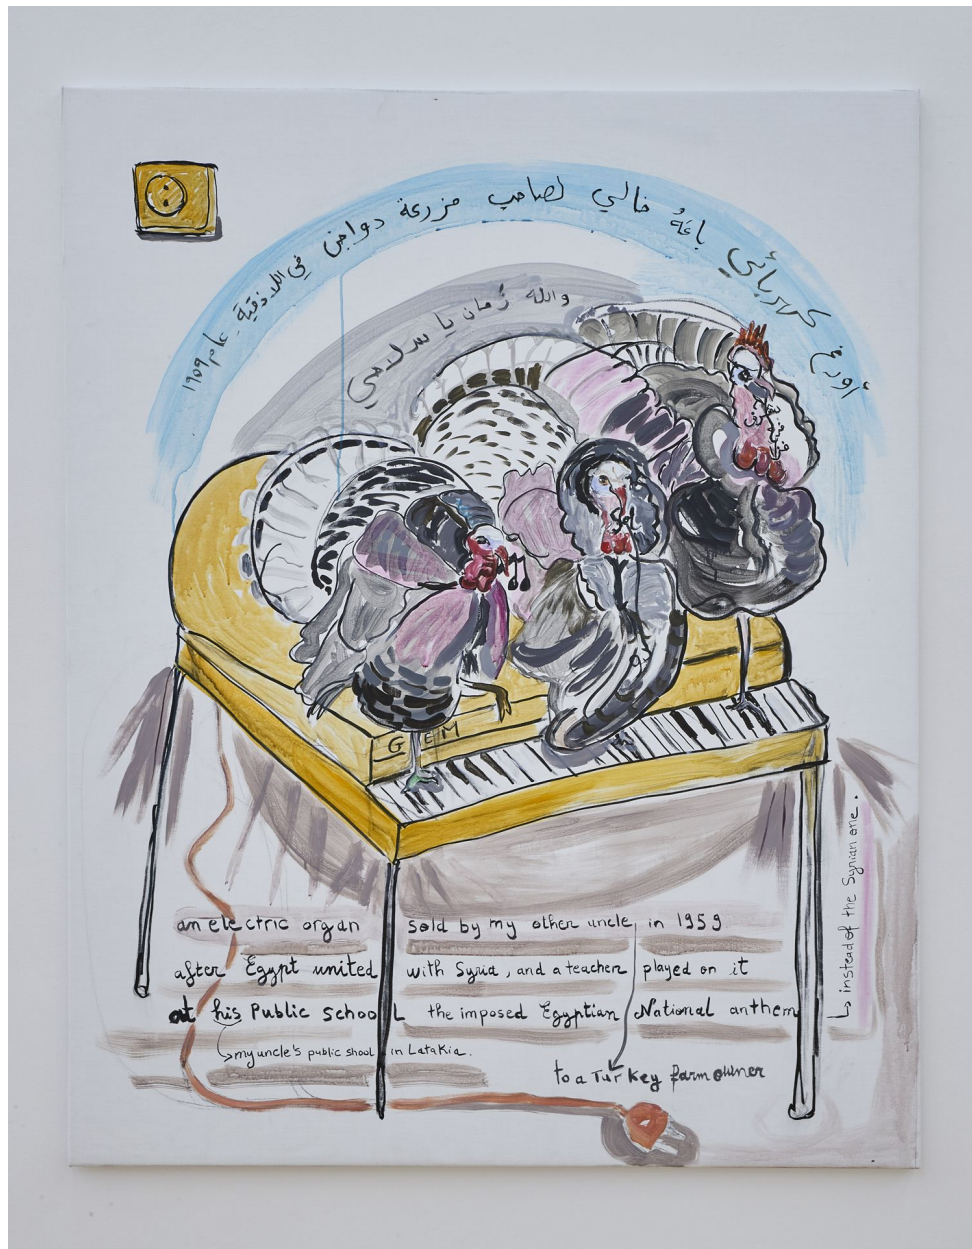 أورغ كهربائي باعَهُ خالي لصاحب مزرعة دواجن في اللاذقية عام ١٩٥٩
والله زمان يا سلاحي
GEM
an electric organ sold by my other uncle in 1959
after Egypt united with Syria, and a teacher played on it
at his Public school the imposed Egyptian National anthem
my uncle's public shool in Latakia.
to a Turkey farm owner
instead of the Syrian one.